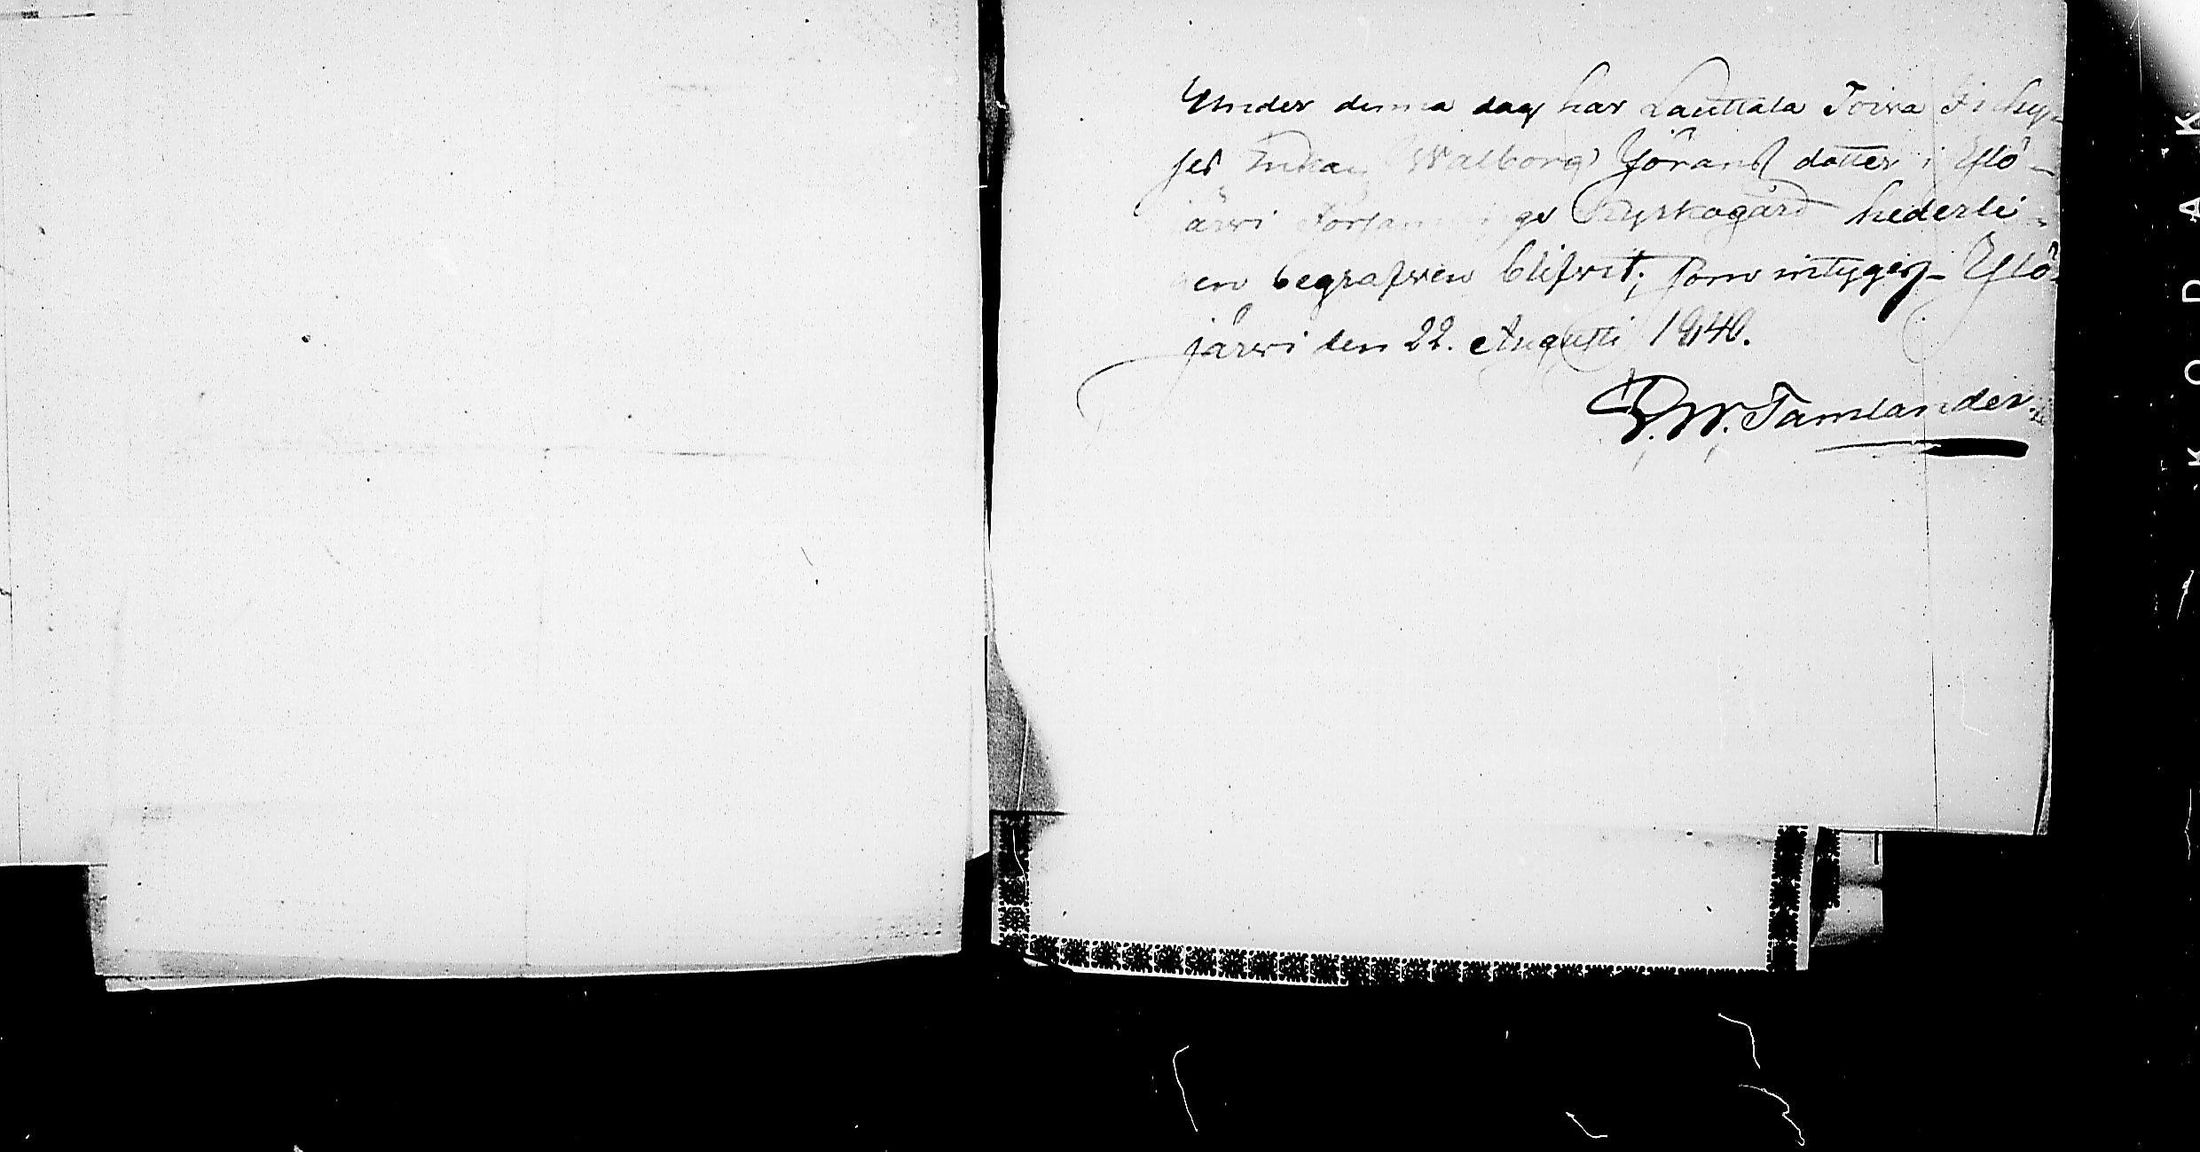 Under denna dag har Lauttala Toira
Enkan Walborg Jörans dotter i Ylö-
järvi Församlings Kyrkogård hederli-
en begrafven blifvit; som intygas Ylö-
järvi den 22. Augusti 1840.
G. W. Tamlander.
KODAK